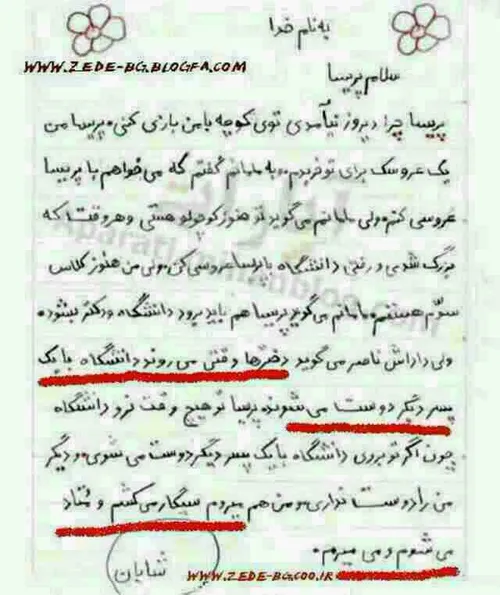 به نام خدا
WWW.ZEDE-BG.BLOGFA.COM
سلام پریسا
پریسا چرا دیروز نیامدی توی کوچه با من بازی کنی، پریسا من
یک عروسک برای تو خریدم و به مامانم گفتم که می خواهم با پریسا
عروسی کنم ولی مامانم می گوید تو هنوز کوچولو هستی و هر وقت که
بزرگ شدی و رفتی دانشگاه با پریسا عروسی کن، ولی من هنوز کلاس
سوّم هستم، مامانم می گوید پریسا هم باید برود دانشگاه و دکتر بشوده
ولی داداش ناصر می گوید دخترها وقتی می روند دانشگاه با یک
پسر دیگر دوست می شونده پریسا تو هیچ وقت نرو دانشگاه
چون اگر تو بروی دانشگاه با یک پسر دیگر دوست می شوی و دیگر
من را دوست نداری، و من هم میروم سیگار می کشم و مُتاد
می شوم و می میرم.
شایان
WWW.ZEDE-BG.COO.IR